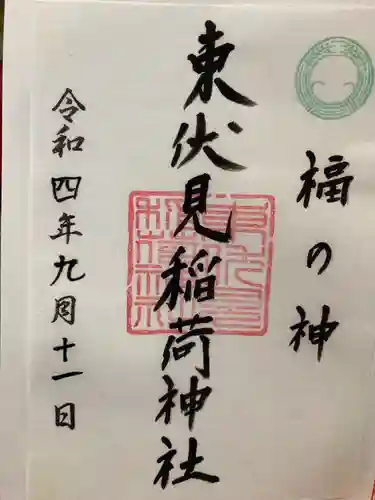 福の神
東伏見稲荷神社
令和四年九月十一日